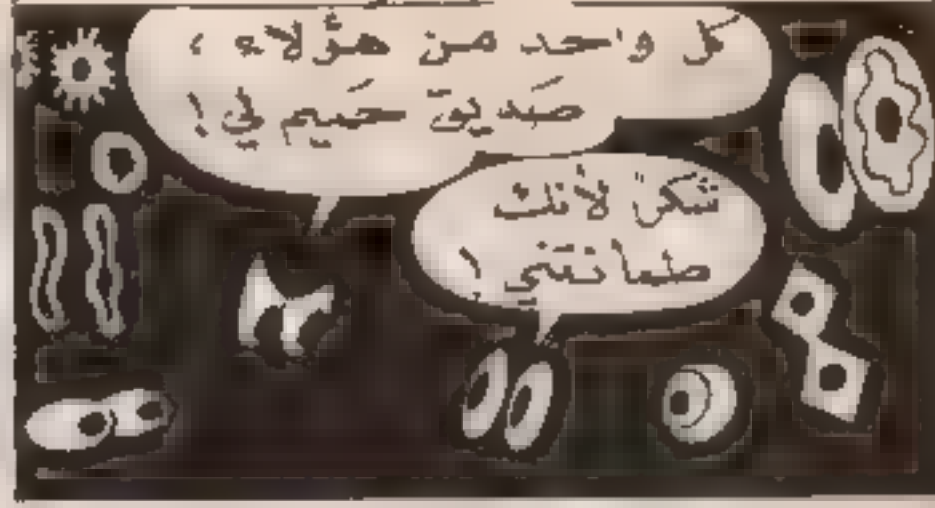 كل واحد من هؤلاء ،
صَديق حَميم لي !
شكراً لأنك
طمأنتني !